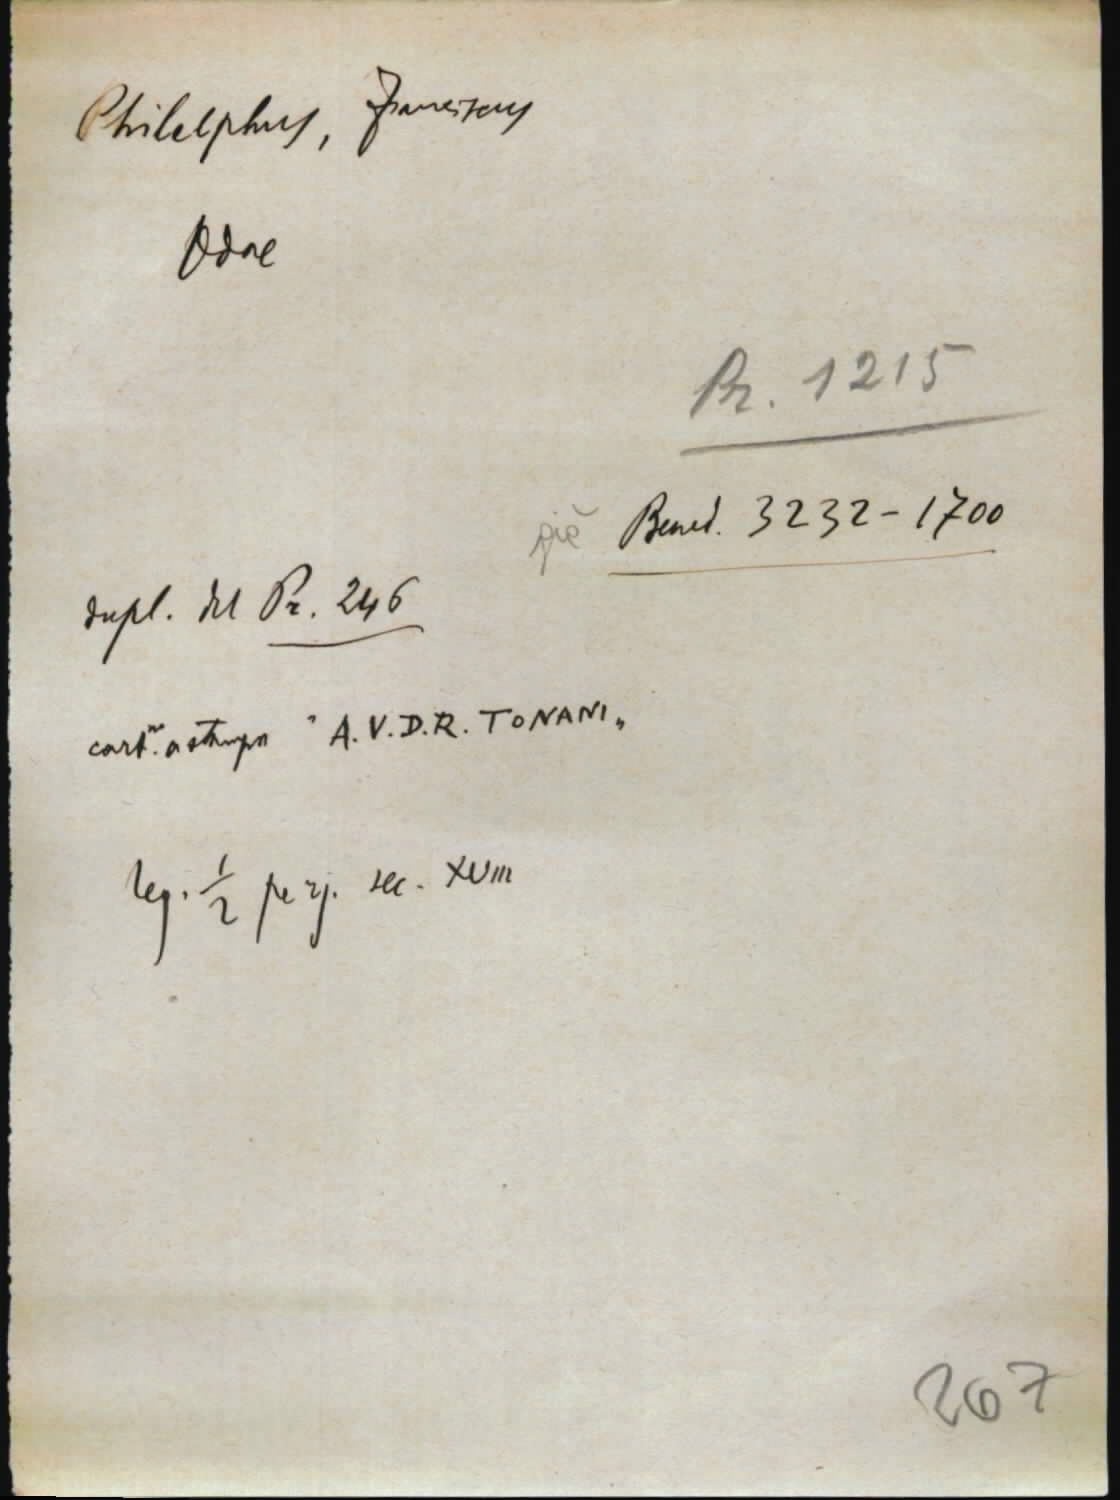 Philelphus, Franciscus
Odae
Pr. 1215
già Bened. 3232-1700
dupl. del Pr. 246
cart.ⁿᵒ a stampa "A.V.D.R. TONANI„
leg. 1/2 perg. sec. XVIII
267